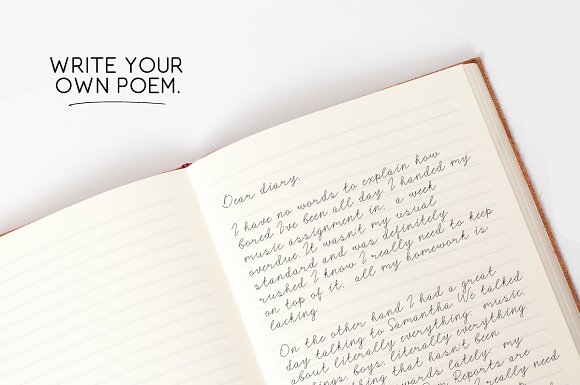 WRITE YOUR
OWN POEM.
Dear diary,
I have no words to explain how
bored I've been all day. I handed my
music assignment in; a week
overdue. It wasn't my usual
standard and was definitely
rushed. I know I really need to keep
on top of it; all my homework is
lacking
On the other hand I had a great
day talking to Samantha. We talked
about literally everything; music,
boys, literally everything
thing that hasn't been
wards lately; my
Reports are
I really need